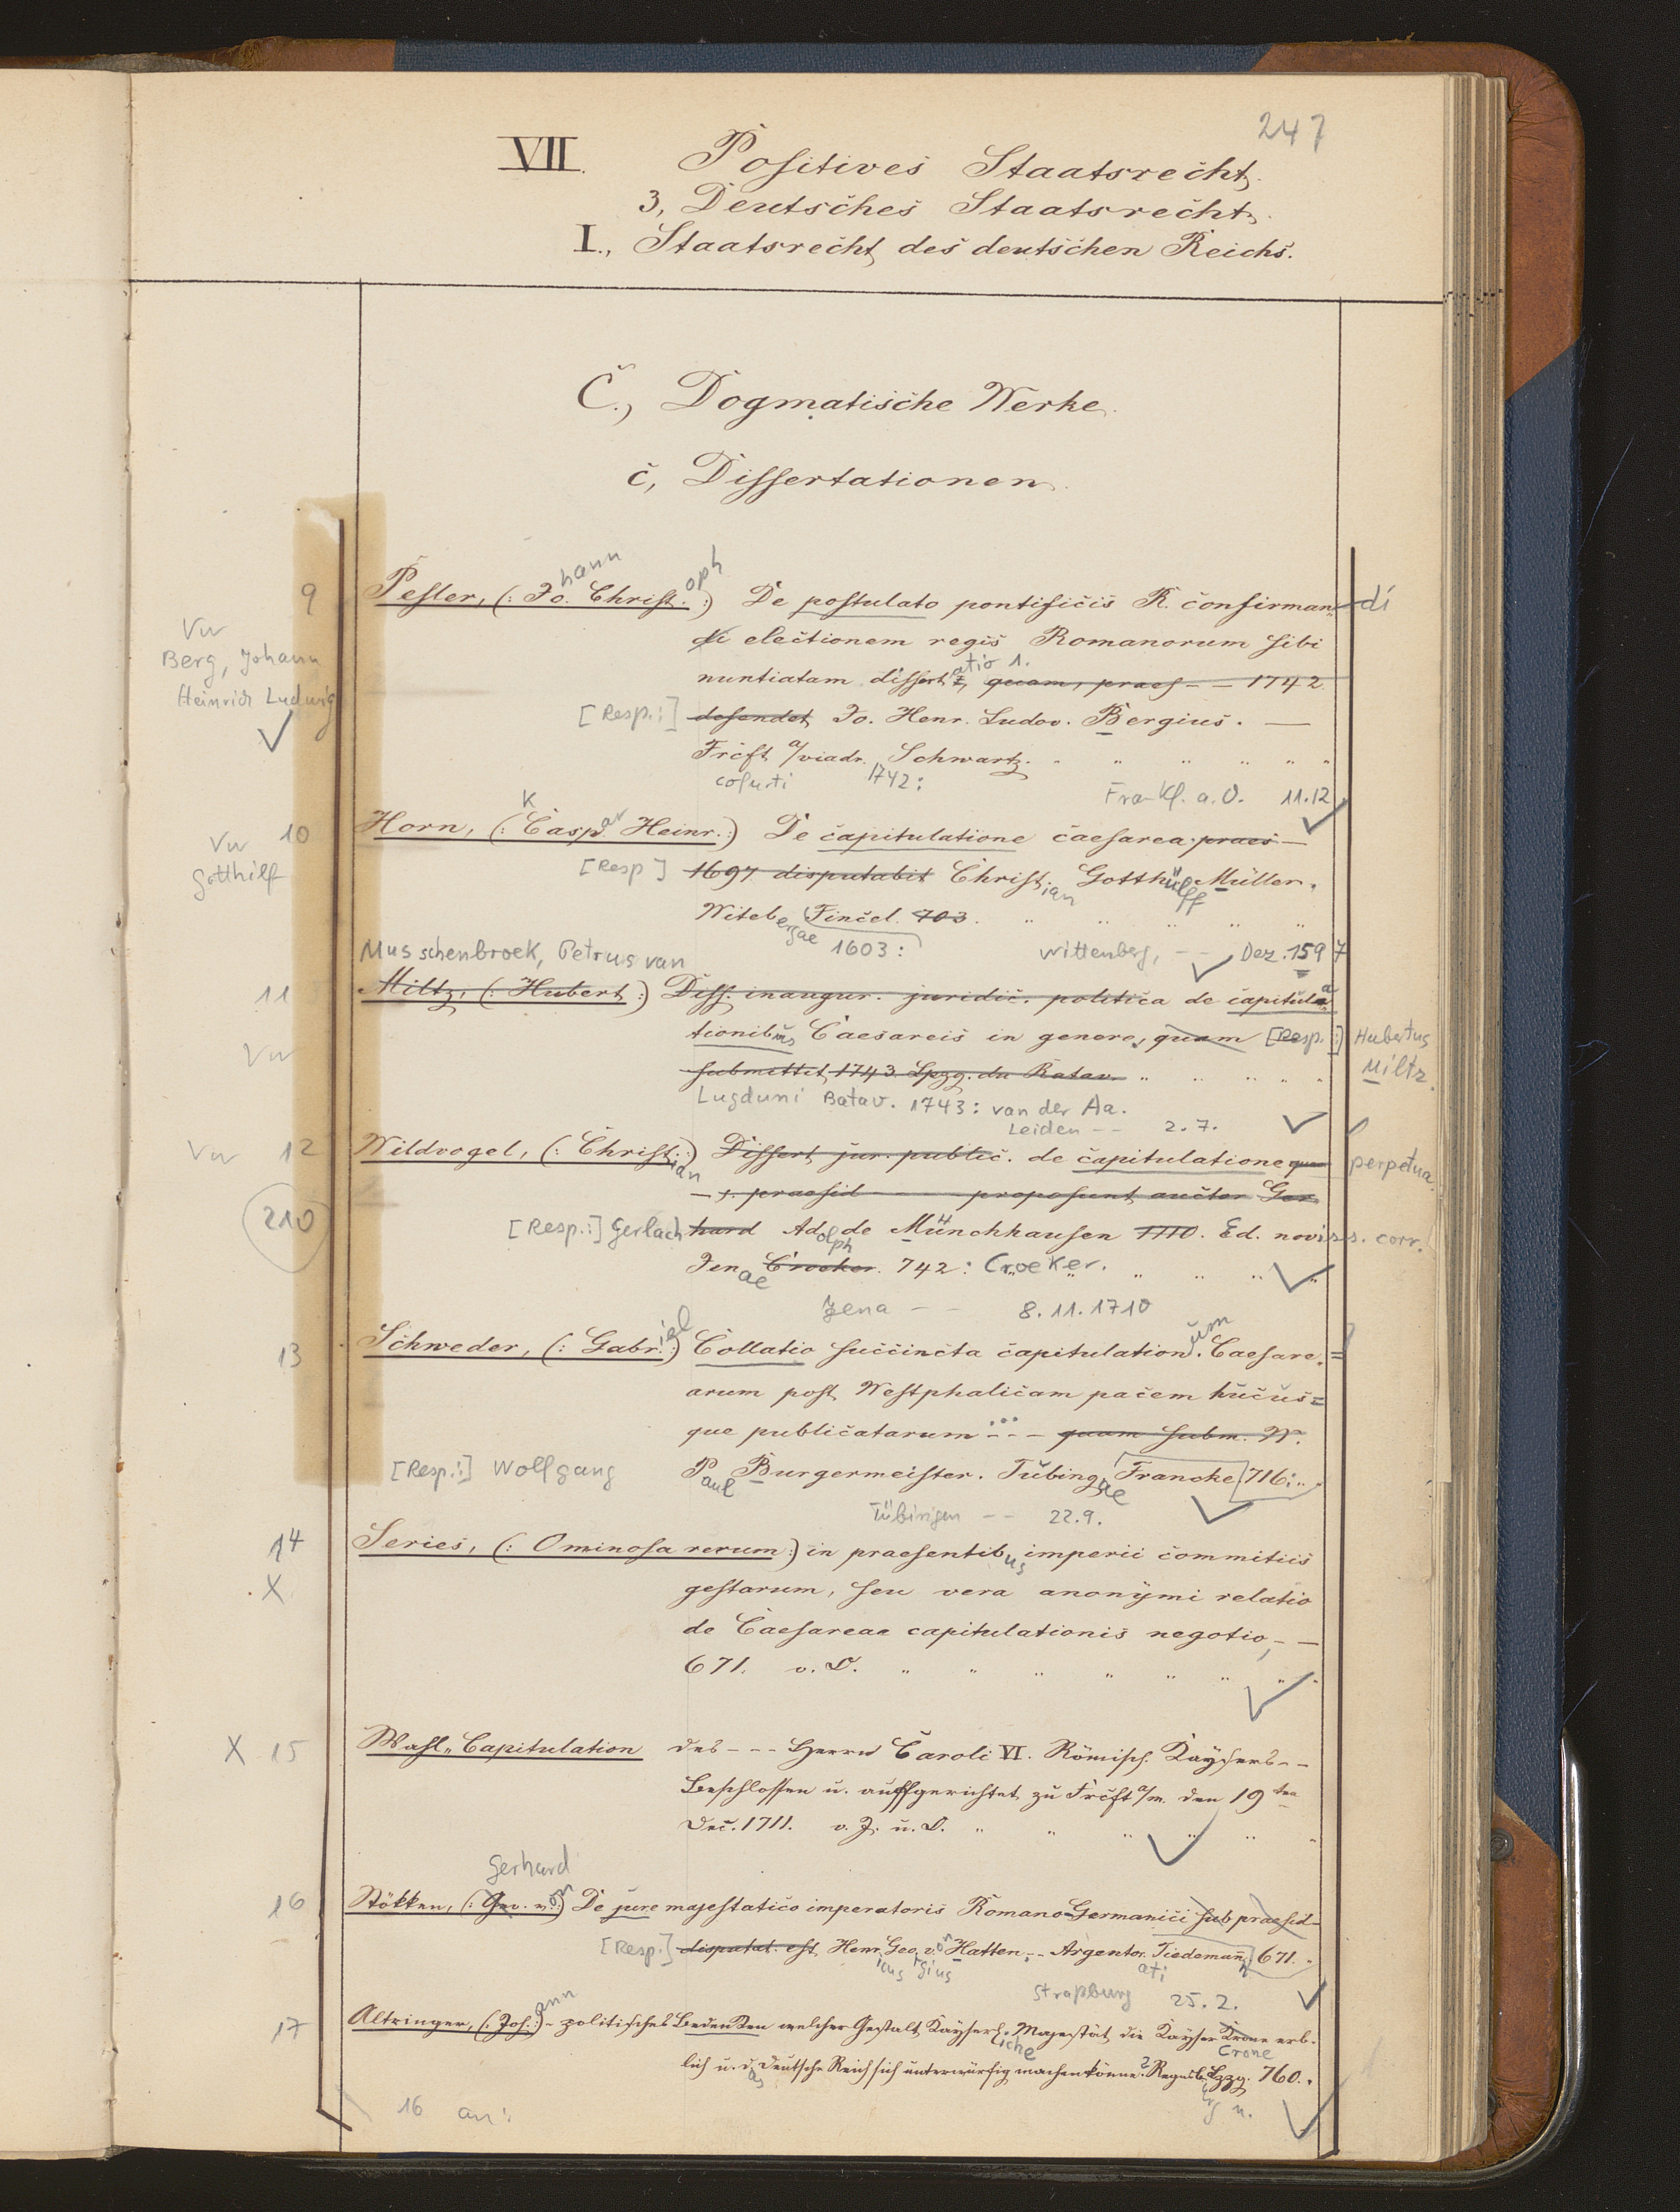 247
VII. Positives Staatsrecht.
3, Deutsches Staatsrecht.
I., Staatsrecht des deutschen Reichs.
C., Dogmatische Werke.
c, Dissertationen.
9 Pesler, (: Jo.hann Christ.oph :) De postulato pontificis R. confirman- di
di electionem regis Romanorum sibi
Vw
Berg, Johann
Heinrich Ludwig
nuntiatam dissertatio 1. quam, praes - - 1742.
[Resp.:] defendet Jo. Henr. Ludov. Bergius. —
Frcft a/viadr. Schwartz. " " " " " "
1742: Frankf. a. O. 11.12
10 Horn, (: Caspar Heinr. :) De capitulatione caesarea praes —
K
Vw
Gotthilf
[Resp] 1697 disputabit Christian Gotthülff Müller.
Witebergae Fincel. 703. " " " " "
1603: Wittenberg, - - Dez. 1597
Musschenbroek, Petrus van
11 Miltz, (: Hubert :) Diss. inaugur. juridic. politica de capitula-
Vw
tionibus Caesareis in genere, quam [Resp.:] Hubertus
Miltz.
submittit 1743. Lpzg. du Batav. " " " " "
Lugduni Batav. 1743: van der Aa.
Leiden - - 2.7.
Vw 12 Wildvogel, (: Christian :) Dissert. jur. public. de capitulatione quam perpetua.
— s. praesid — proposunt auctor Ger-
210
[Resp.:] Gerlach hard Adolph de Münchhausen 1710. Ed. noviss. corr.
Jenae Croeker. 742: Croeker. " " " "
Jena - - 8.11.1710
13 Schweder, (: Gabr.iel :) Collatio succincta capitulationum Caesare-
arum post Westphalicam pacem hucus=
que publicatarum ... - quam subm. W.
[Resp.:] Wolfgang Paul Burgermeister. Tübingae Francke 716: "
Tübingen - - 22.9.
14 Series, (: Ominosa rerum :) in praesentibus imperii commitiis
X
gestarum, seu vera anonymi relatio
de Caesareae capitulationis negotio, - —
671. o. O. " " " " " " "
X 15 Wahl-Capitulation des - - - Herrn Caroli VI. Römisch. Kaysers - -
Beschlossen u. auffgerichtet zu Frcft a/m. den 19ten
Dec. 1711. o. J. u. O. " " " " " "
Gerhard
16 Stökken, (: Geo. von :) De jure majestatico imperatoris Romano-Germanici sub praesid-
[Resp.] disputat. est Henricus Georgius von Hatten. - - Argentorati Tiedemann 671. "
Straßburg 25.2.
17 Altringer, (: Johann :) - politisches Bedenken welcher Gestalt Kayserliche Majestät die Kayser Krone erb-
Crone
lich u. das Deutsche Reich sich unterwürfig machen könne? Regensb. Lpzg. 760. "
16 an: